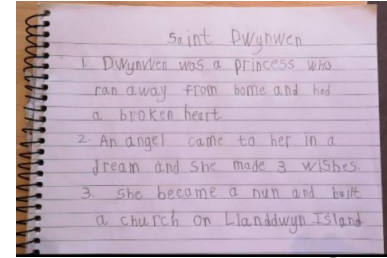 Saint Dwynwen
1. Dwynwen was a princess who
ran away from home and had
a broken heart.
2. An angel came to her in a
dream and she made 3 wishes.
3. She became a nun and built
a church on Llanddwyn Island.